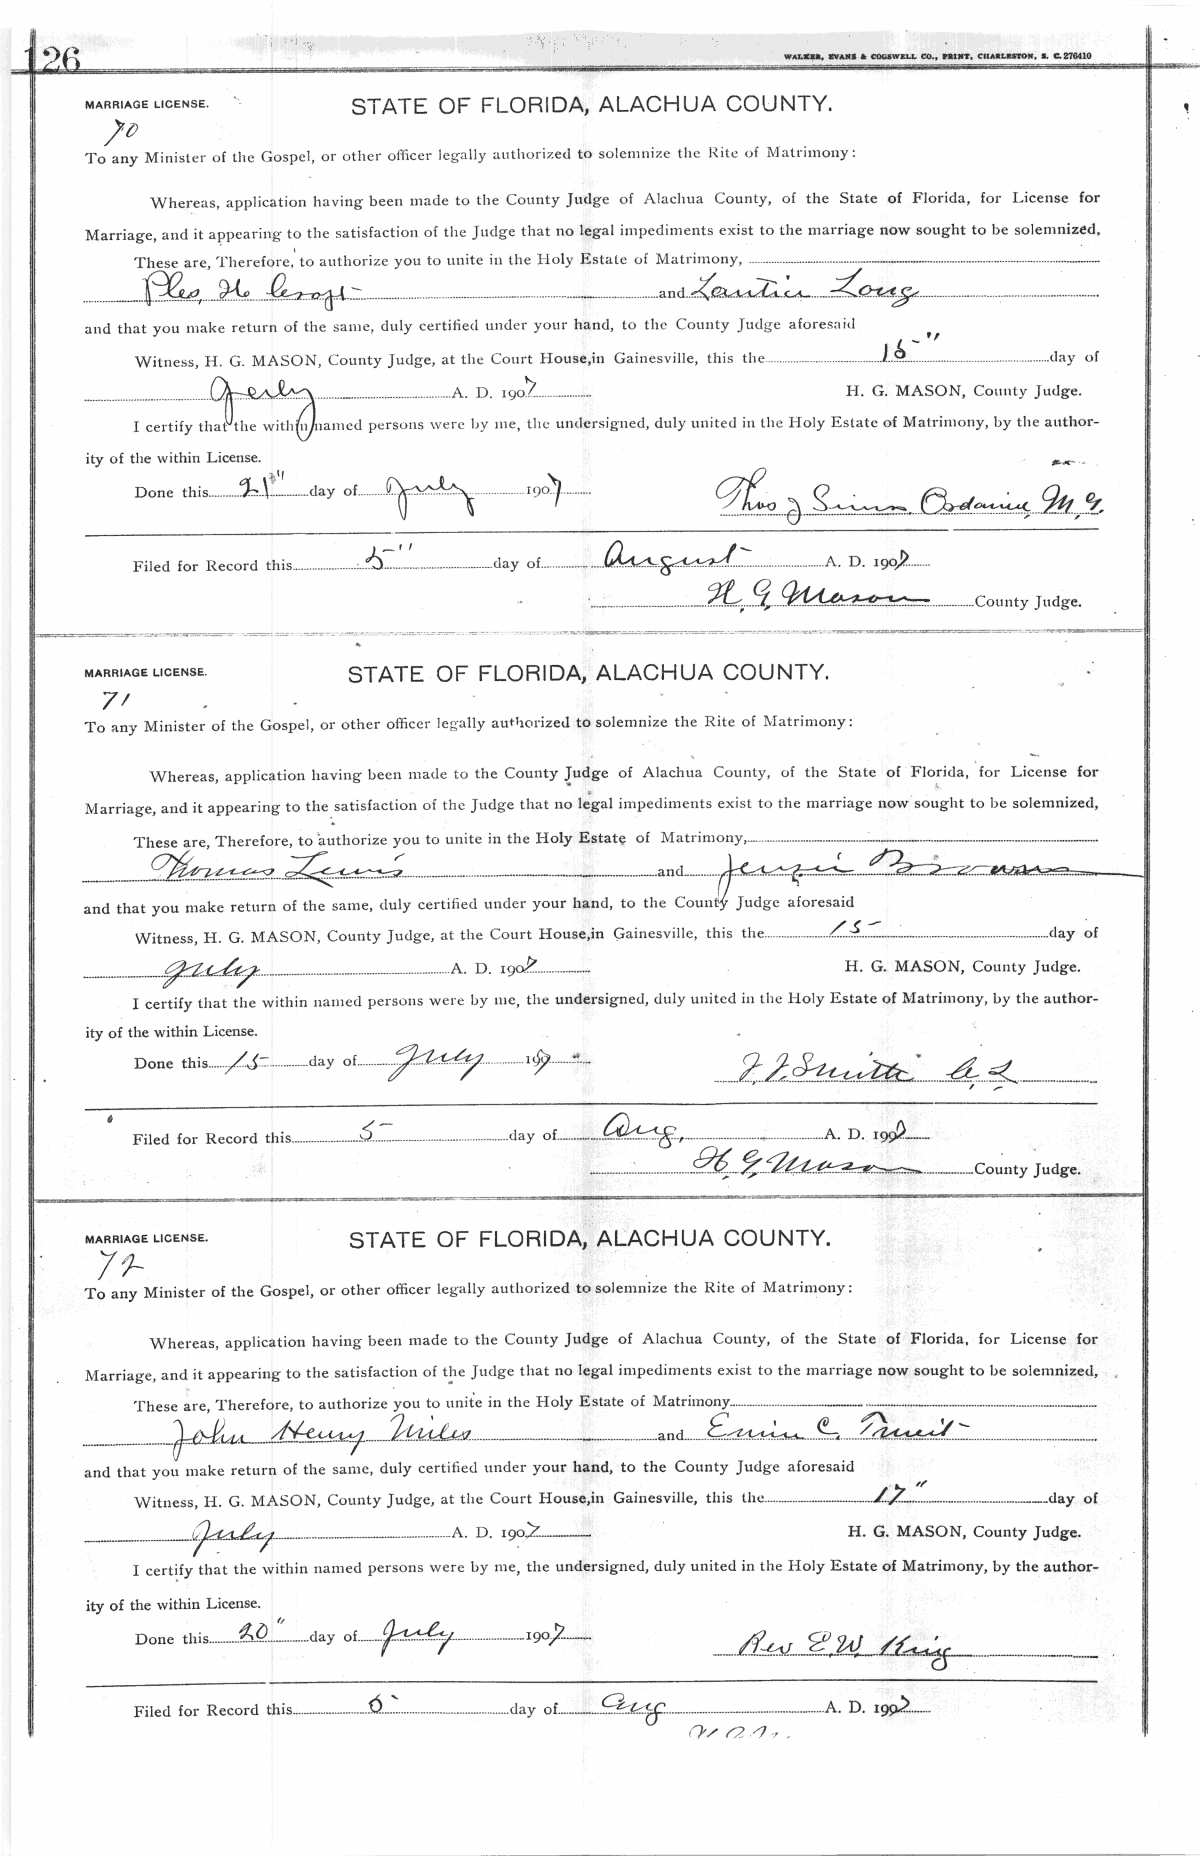 126
WALKER, EVANS & COGSWELL CO., PRINT, CHARLESTON, S. C. 276410
MARRIAGE LICENSE. STATE OF FLORIDA, ALACHUA COUNTY.
70
To any Minister of the Gospel, or other officer legally authorized to solemnize the Rite of Matrimony:
Whereas, application having been made to the County Judge of Alachua County, of the State of Florida, for License for
Marriage, and it appearing to the satisfaction of the Judge that no legal impediments exist to the marriage now sought to be solemnized,
These are, Therefore, to authorize you to unite in the Holy Estate of Matrimony,
Ples. H and Long
and that you make return of the same, duly certified under your hand, to the County Judge aforesaid
Witness, H. G. MASON, County Judge, at the Court House, in Gainesville, this the 15" day of
July A. D. 1907 H. G. MASON, County Judge.
I certify that the within named persons were by me, the undersigned, duly united in the Holy Estate of Matrimony, by the author-
ity of the within License.
Done this 21" day of July 1907 Thos J M. G.
Filed for Record this 5" day of August A. D. 1907
H. G. Mason County Judge.
MARRIAGE LICENSE. STATE OF FLORIDA, ALACHUA COUNTY.
71
To any Minister of the Gospel, or other officer legally authorized to solemnize the Rite of Matrimony:
Whereas, application having been made to the County Judge of Alachua County, of the State of Florida, for License for
Marriage, and it appearing to the satisfaction of the Judge that no legal impediments exist to the marriage now sought to be solemnized,
These are, Therefore, to authorize you to unite in the Holy Estate of Matrimony,
Thomas Lewis and Brown
and that you make return of the same, duly certified under your hand, to the County Judge aforesaid
Witness, H. G. MASON, County Judge, at the Court House, in Gainesville, this the 15 day of
July A. D. 1907 H. G. MASON, County Judge.
I certify that the within named persons were by me, the undersigned, duly united in the Holy Estate of Matrimony, by the author-
ity of the within License.
Done this 15 day of July 197 Smith
Filed for Record this 5 day of Aug, A. D. 1907
H. G. Mason County Judge.
MARRIAGE LICENSE. STATE OF FLORIDA, ALACHUA COUNTY.
72
To any Minister of the Gospel, or other officer legally authorized to solemnize the Rite of Matrimony:
Whereas, application having been made to the County Judge of Alachua County, of the State of Florida, for License for
Marriage, and it appearing to the satisfaction of the Judge that no legal impediments exist to the marriage now sought to be solemnized,
These are, Therefore, to authorize you to unite in the Holy Estate of Matrimony
John Henry Miles and C.
and that you make return of the same, duly certified under your hand, to the County Judge aforesaid
Witness, H. G. MASON, County Judge, at the Court House, in Gainesville, this the 17" day of
July A. D. 1907 H. G. MASON, County Judge.
I certify that the within named persons were by me, the undersigned, duly united in the Holy Estate of Matrimony, by the author-
ity of the within License.
Done this 20" day of July 1907 Rev E. W. King
Filed for Record this 5 day of Aug A. D. 1907